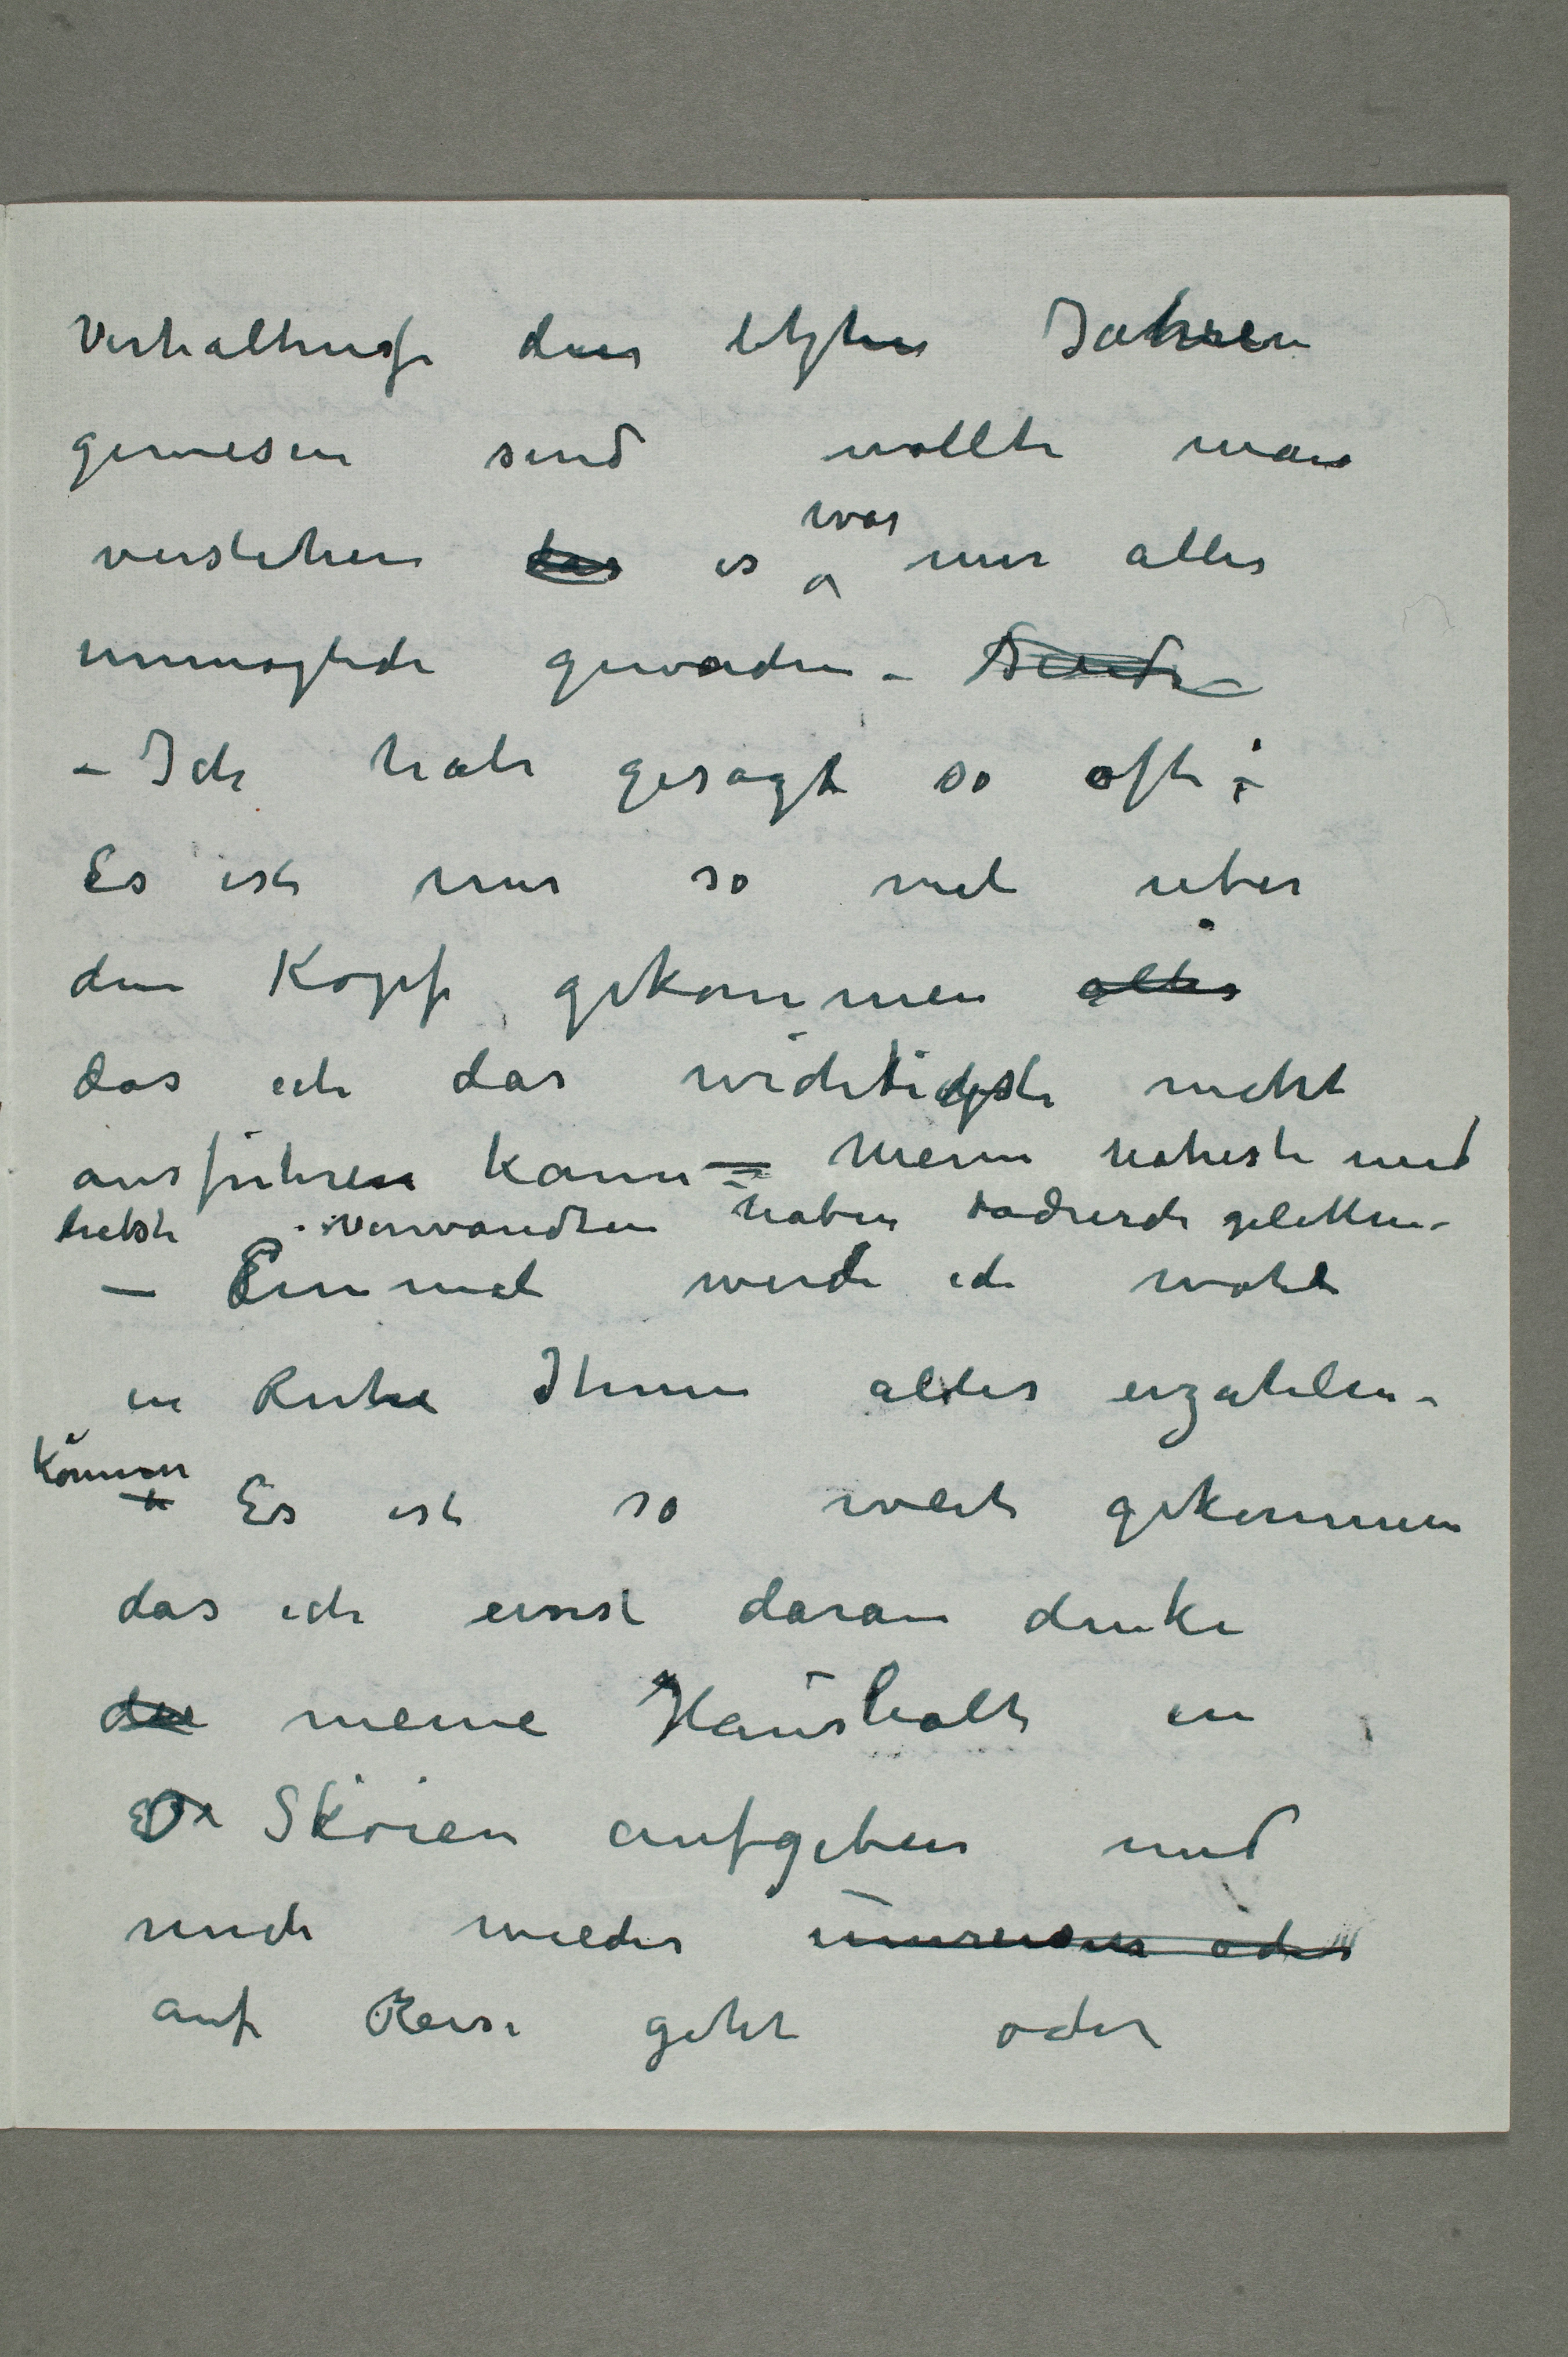 Verhaltnisse der letzten Jahren
gewesen sind wollte man
verstehen das es war mir alles
unmöglich geworden –
– Ich habe gesagt so oft:
Es ist mir so viel über
den Kopf gekommen alles
das ich das wichtigste nicht
ausführen kann – Meine naheste und
liebste Verwandten haben dadurch gelitten –
– Einmal werde ich wohl
in Ruhe Ihnen alles erzahlen –
können Es ist so weit gekommen
das ich ernst daran denke
die meine Haushalt in
Sköien aufgeben und
mich wieder umreisen oder
auf Reise geht oder